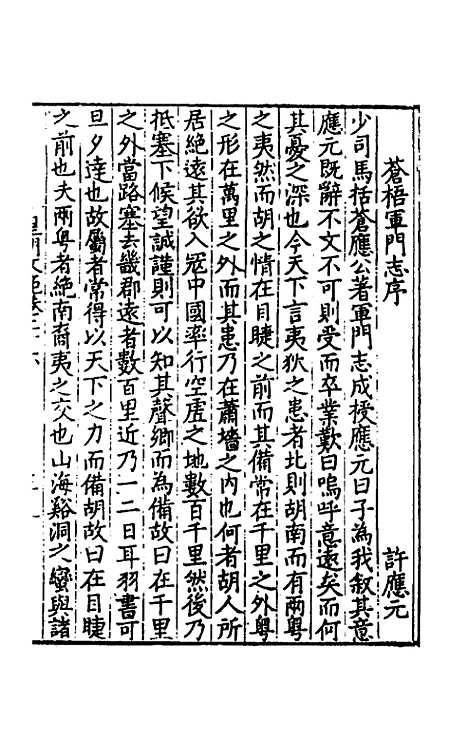 蒼梧軍門志序　許應元
少司馬括蒼應公著軍門志成授應元曰子為我叙其意
應元既辭不文不可則受而卒業歎曰嗚呼意遠矣而何
其憂之深也今天下言夷狄之患者北則胡南而有兩粤
之夷然而胡之情在目睫之前而其備常在千里之外粤
之形在萬里之外而其患乃在蕭墻之内也何者胡人所
居絶遠其欲入冦中國率行空虚之地數百千里然後乃
抵塞下候望誠謹則可以知其聲鄉而為備故曰在千里
之外當路塞去畿郡遠者數百里近乃一二日耳羽書可
旦夕達也故屬者常得以天下之力而備胡故曰在目睫
之前也夫兩粤者絶南裔夷之交也山海谿洞之蠻與諸